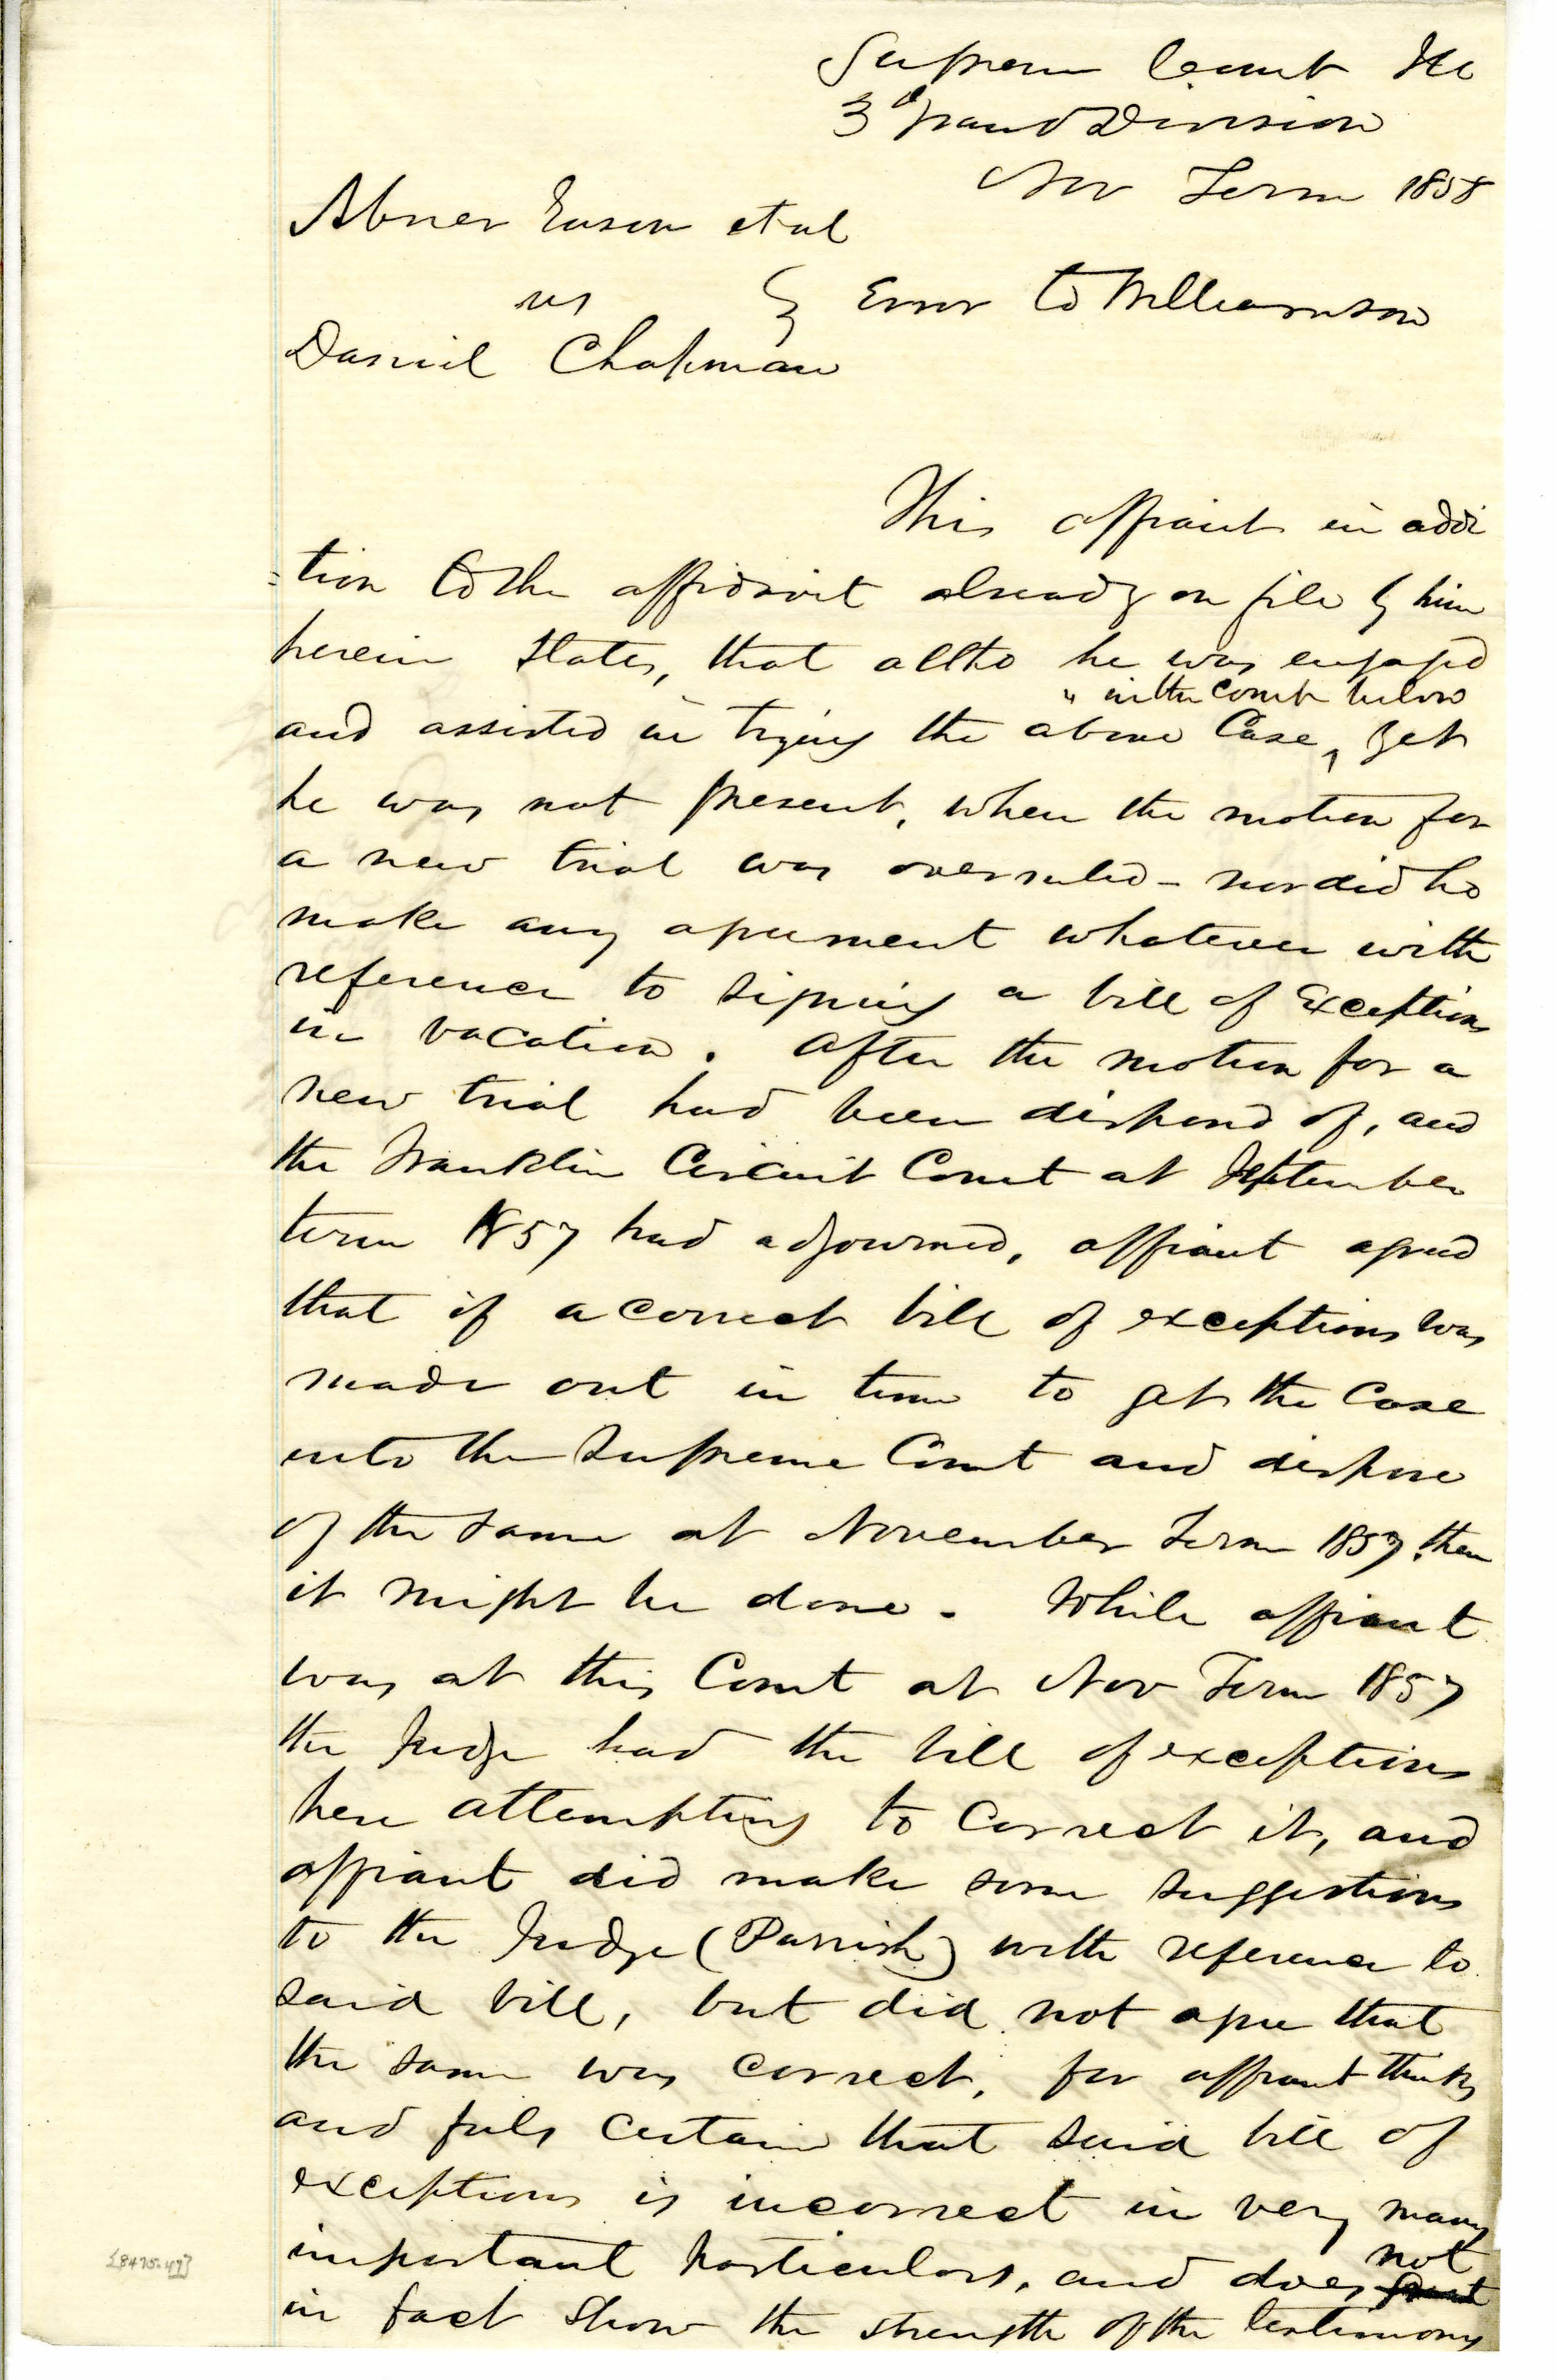 Supreme Court Ill
3d Grand Division
Nov Term 1858
Abner Eason et al
vs } Error to Williamson
Daniel Chapman
This affiant in addi
=tion to the affidavit already on file by him
herein states, that altho he was engaged
" in the Court below
and assisted in trying the above Case, yet
he was not present, when the motion for
a new trial was overruled - nor did he
make any agreement whatever with
reference to signing a bill of Exceptions
in vacation. After the motion for a
new trial had been disposed of, and
the Franklin Circuit Court at September
term 1857 had adjourned, affiant agreed
that if a correct bill of exceptions was
made out in time to get the Case
into the Supreme Court and dispose
of the same at November Term 1857. then
it might be done. While affiant
was at this Court at Nov Term 1857
the Judge had the bill of exceptions
here attempting to Correct it, and
affiant did make some suggestions
to the Judge (Parrish) with reference to
said bill, but did not agree that
the same was correct, for affiant thinks
and feels certain that said bill of
exceptions is incorrect in very many
important particulars, and does not
in fact show the strength of the testimony
[8475-49]